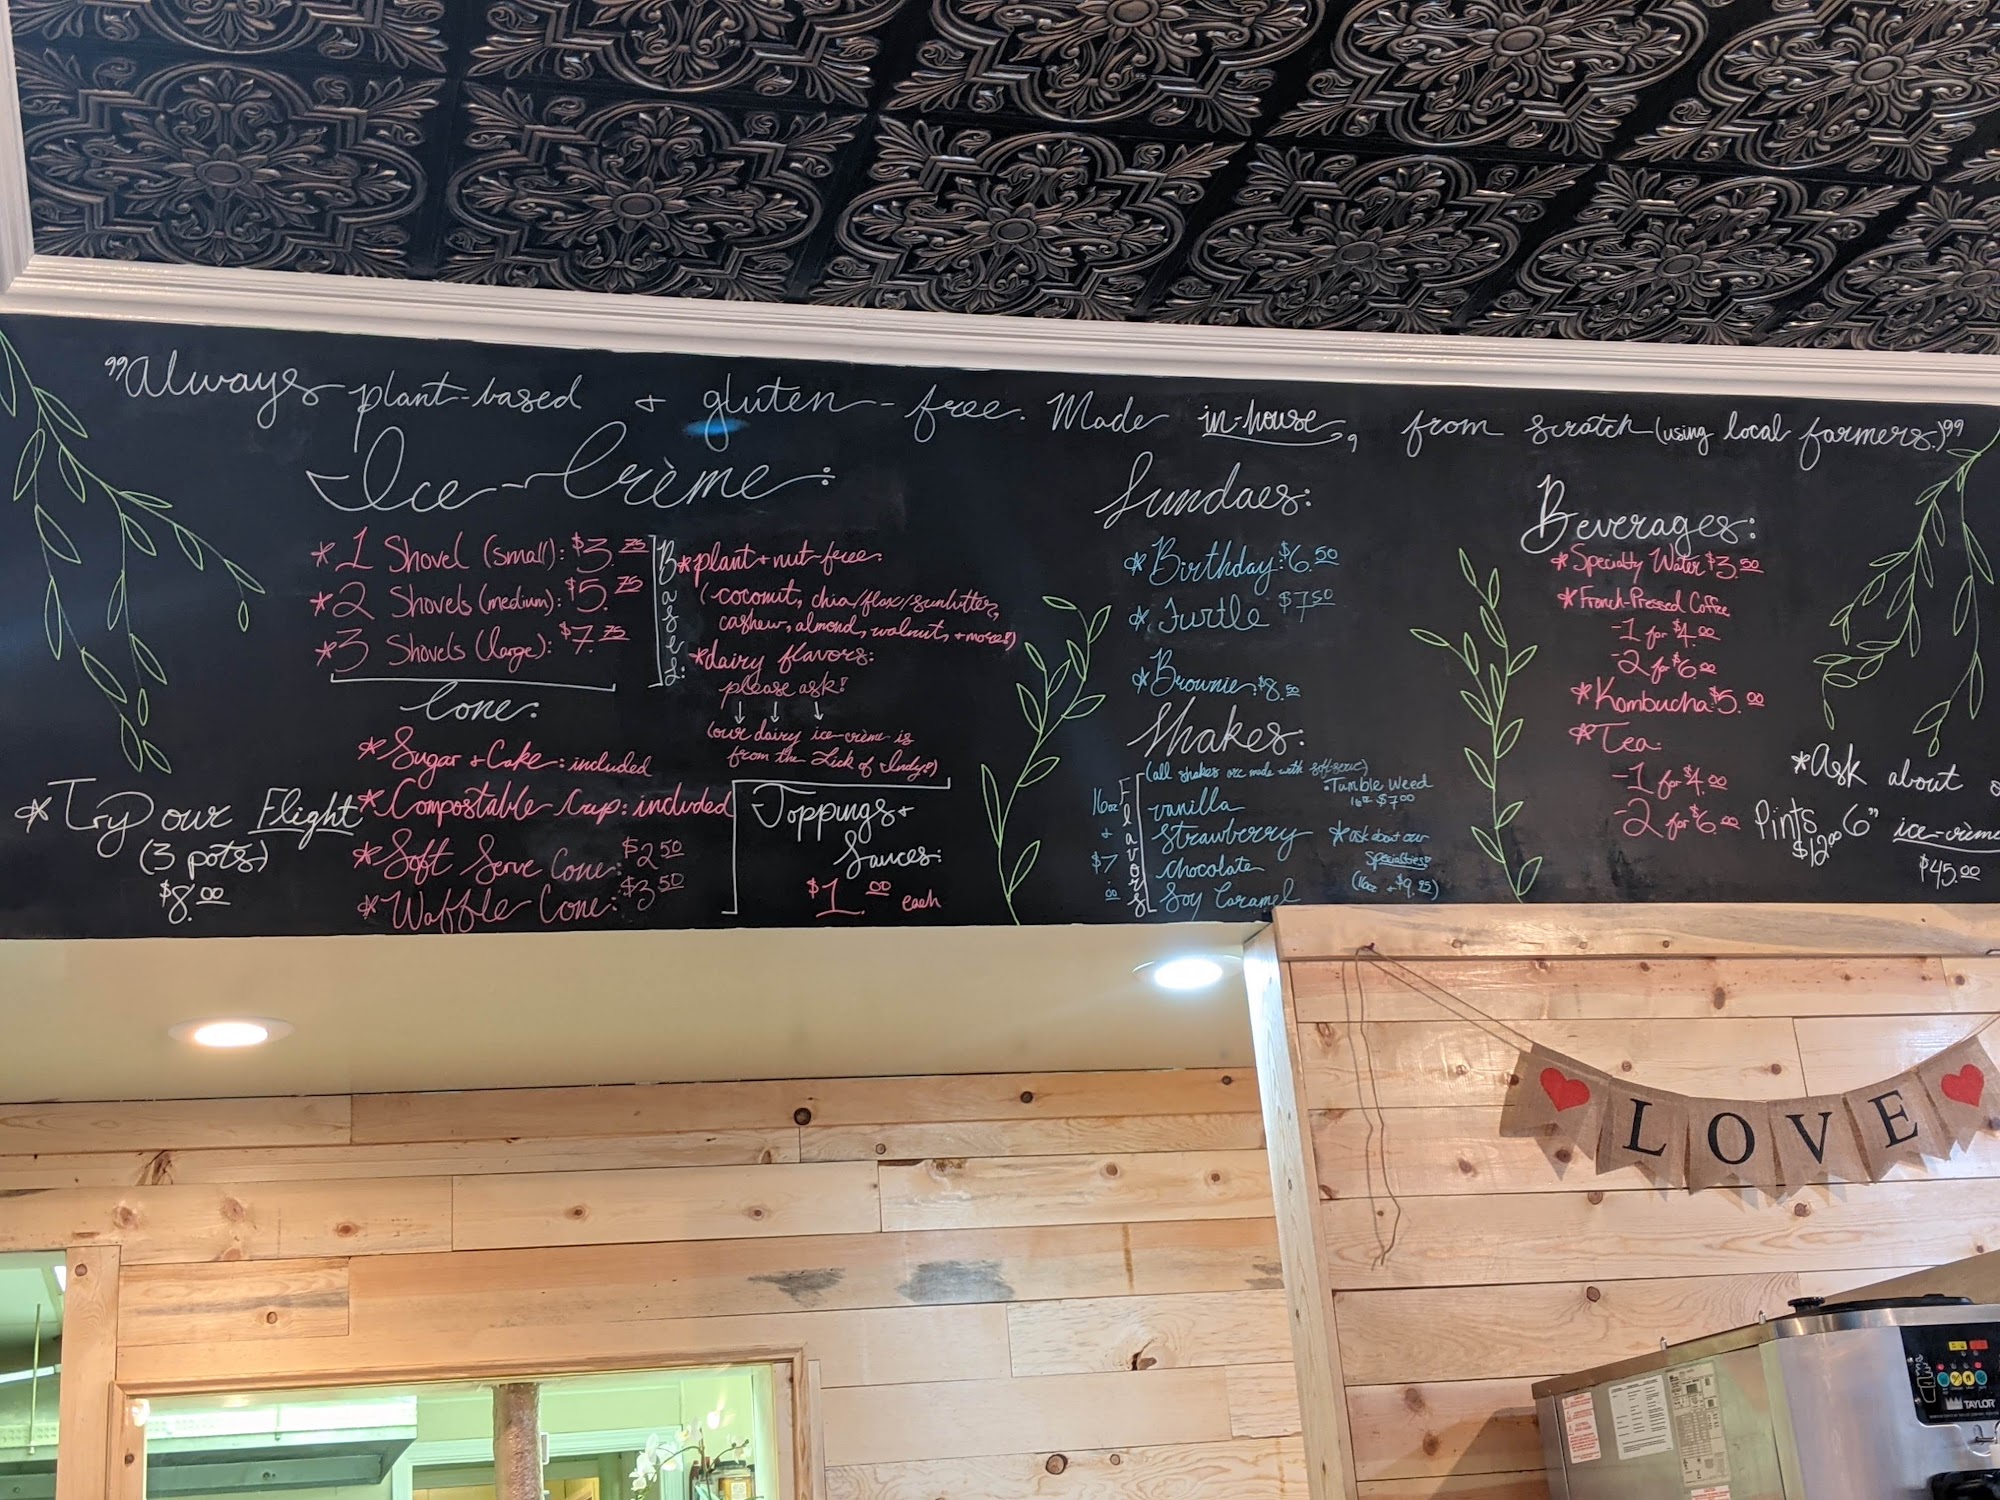 "Always plant-based + gluten-free. Made in-house, from scratch (using local farmers)"
Ice-Crème:
*1 Shovel (small): $3.75
*2 Shovels (medium): $5.75
*3 Shovels (large): $7.75
Bases:
*plant + nut-free:
(coconut, chia/flax/sunbutter,
cashew, almond, walnut, + more!)
*dairy flavors:
please ask!
↓ ↓ ↓
(our dairy ice-crème is
from the Lick of Indy!)
Cone:
*Sugar + Cake: included
*Compostable Cup: included
*Soft Serve Cone: $2.50
*Waffle Cone: $3.50
*Try our Flight
(3 pots)
$8.00
Toppings +
Sauces:
$1.00 each
Sundaes:
*Birthday: $6.50
*Turtle $7.50
*Brownie: $8.50
Shakes:
(all shakes are made with soft-serve)
16oz + $7.00
Flavors
vanilla
strawberry
chocolate
Soy Caramel
Tumble Weed
16oz $7.00
*ask about our
Specialties!
Beverages:
*Specialty Water $3.50
*French-Pressed Coffee
-1 for $4.00
-2 for $6.00
*Kombucha: $5.00
*Tea:
-1 for $4.00
-2 for $6.00
*Ask about
Pints
$12.00
6" ice-crème
$45.00
LOVE
TAYLOR